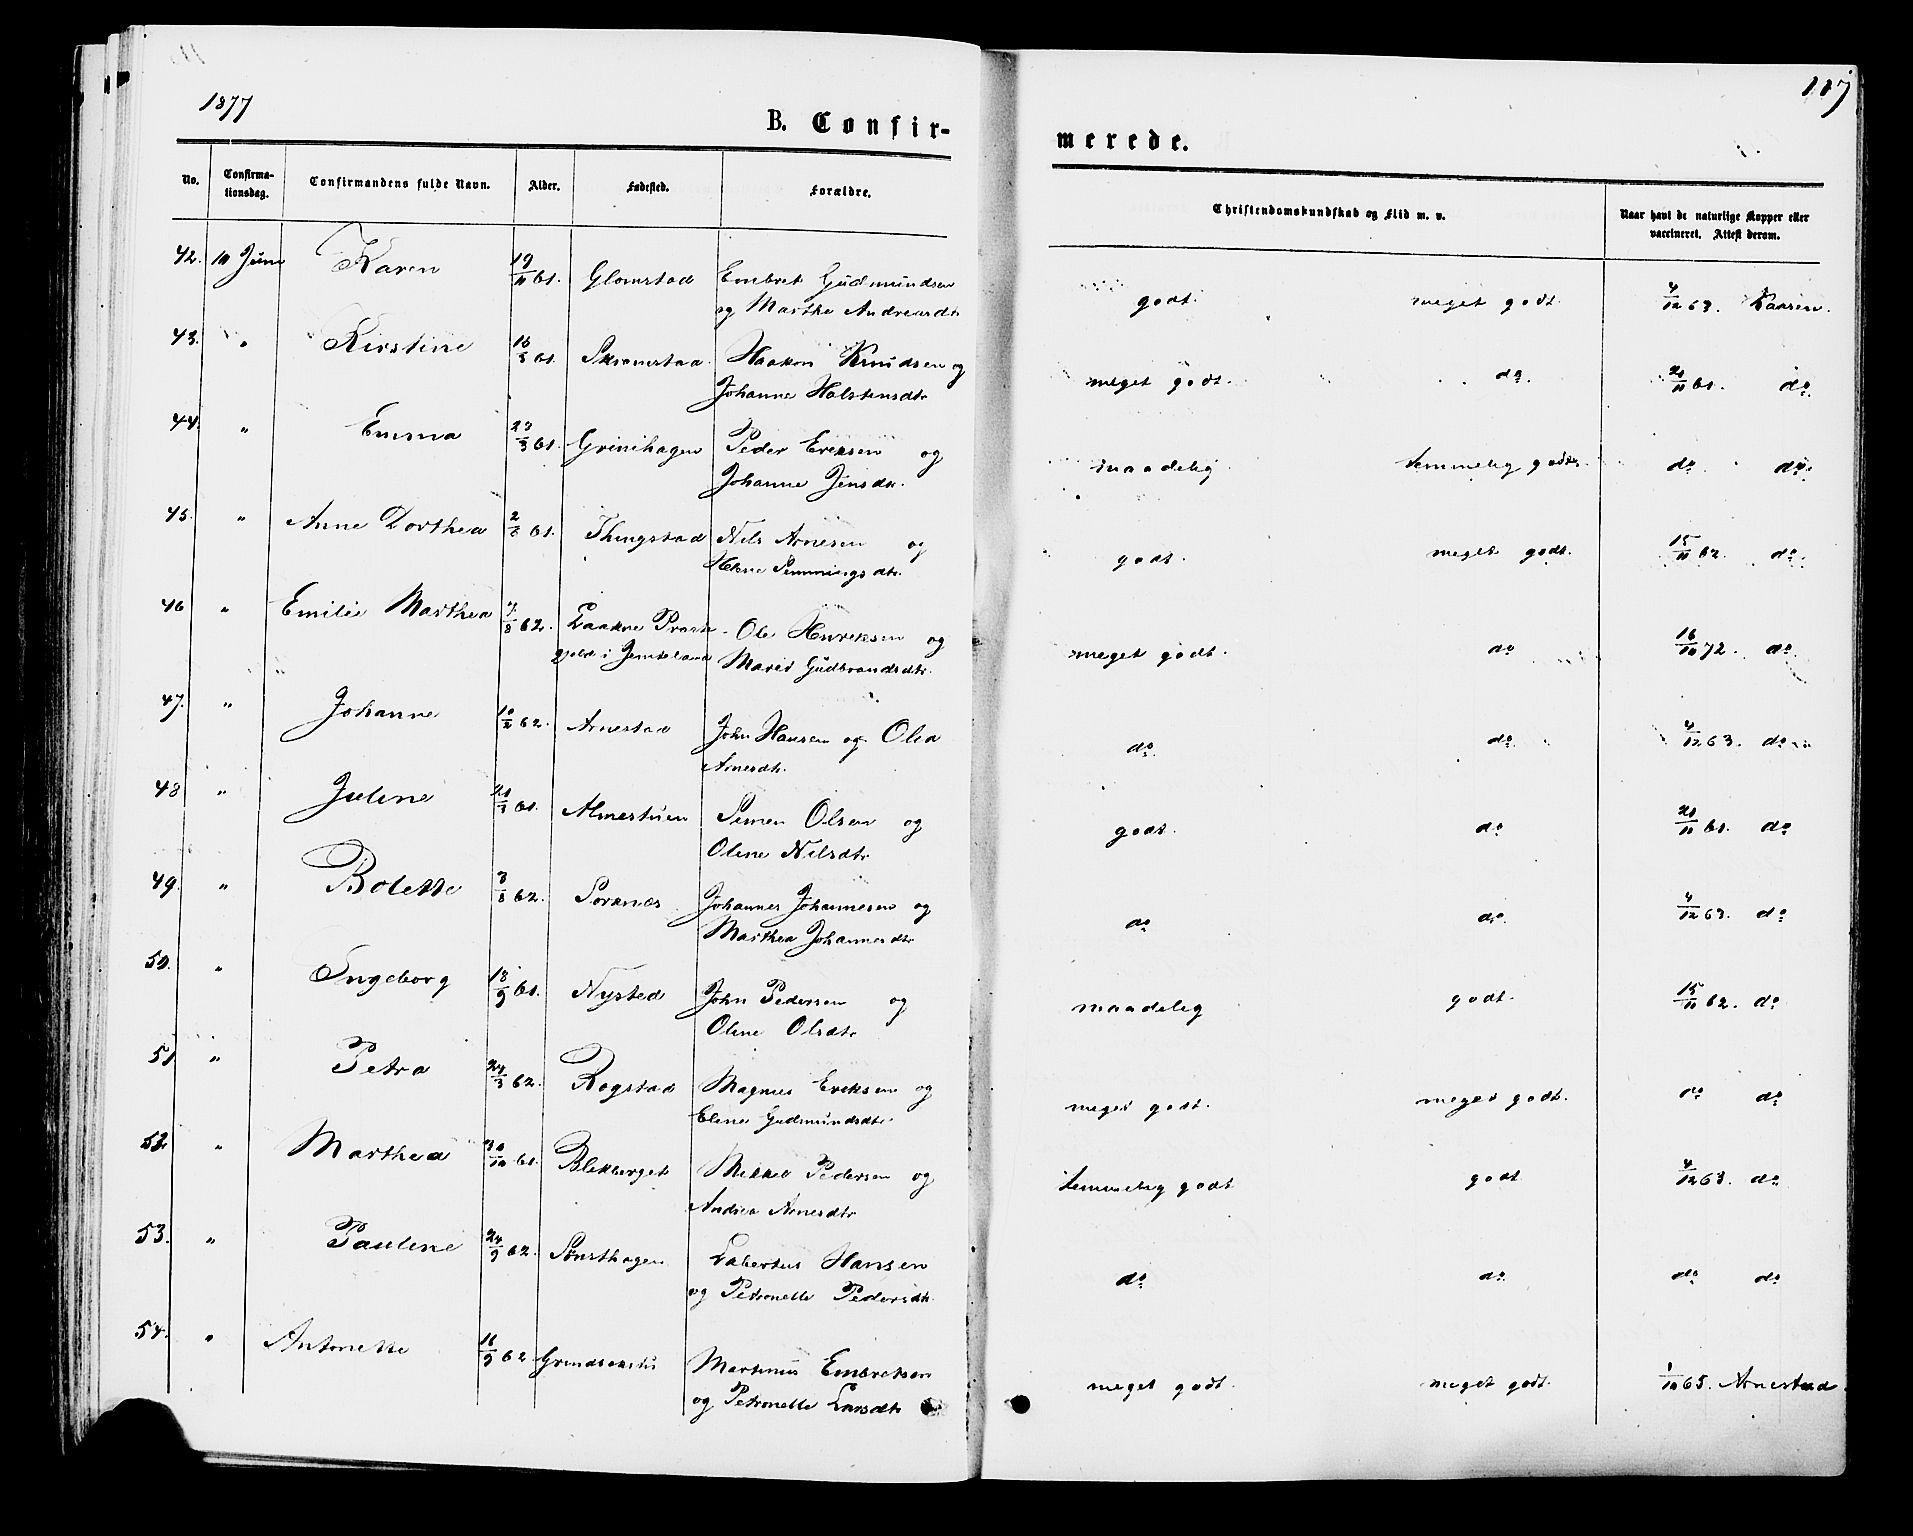 1877
117
B. Confir-
merede.
No.
Confirma-
tionsdag.
Confirmandens fulde Navn.
Alder.
Fødested.
Forældre.
Christendomskundskab og Flid m. v.
Naar havt de naturlige Kopper eller
vaccineret. Attest derom.
42. 10 Juni Karen 19/11 61. Glomstad Embret Gudmundsen
og Marthe Andreasdtr
godt. meget godt 4/12 63. Kaasen.
43. " Kirstine 16/3 61. Skramstad Haakon Knudsen og
Johanne Halstensdtr
meget godt. do. 21/11 61. do.
44. " Emma 23/3 61. Grinihagen Peder Eriksen og
Johanne Jensdtr.
maadelig temmelig godt. do. do.
45. " Anne Dorthea 2/6 61. Thingstad Nils Arnesen og
Helene Semmingsdtr.
godt. meget godt. 15/11 62. do.
46 " Emilie Marthea 7/8 62. Laakne Præste- Ole Henriksen og
gjeld i Jemteland Marit Gudbrandsdtr.
meget godt. do 16/10 72. do.
47. " Johanne 10/2 62. Arnestad John Hansen og Olea
Arnesdtr.
do. do. 4/12 63. do.
48 " Juline 21/3 61. Almestuen Simen Olsen og
Oline Nilsdtr
godt. do 21/11 61. do
49. " Bolette 3/8 62. Sorknes Johannes Johannesen og
Marthea Johannesdtr
do do. 4/12 63. do
50. " Ingeborg 18/9 61. Nysted John Pedersen og
Oline Olsdtr
maadelig godt. 15/11 62. do
51 " Petra 24/3 62. Rogstad Magnus Eriksen og
Eline Gudmundsdtr.
meget godt. meget godt. do do
52 " Marthea 30/10 61. Blekberget Mikkel Pedersen og
Andrea Arnesdtr
temmelig godt godt 4/12 63. do
53. " Pauline 24/9 62. Sønsthagen Labertus Hansen
og Petronelle Pedersdtr.
do do. do do
54. " Antonette 16/9 62. Grindsakstu Martinus Embretsen
og Petronelle Larsdtr
meget godt. meget godt. 1/10 65. Arnestad.